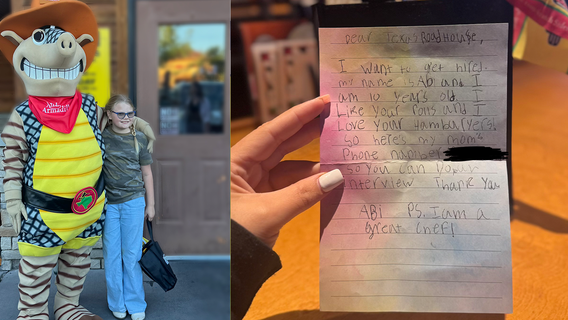 Andy
Armadillo
Dear Texas Roadhouse,
I want to get hired.
my name is Abi and I
am 10 years old. I
Like your rolls and I
Love your hamburgers.
So here's my mom's
Phone
so you can
interview Thank you
ABi PS. I am a
great chef!